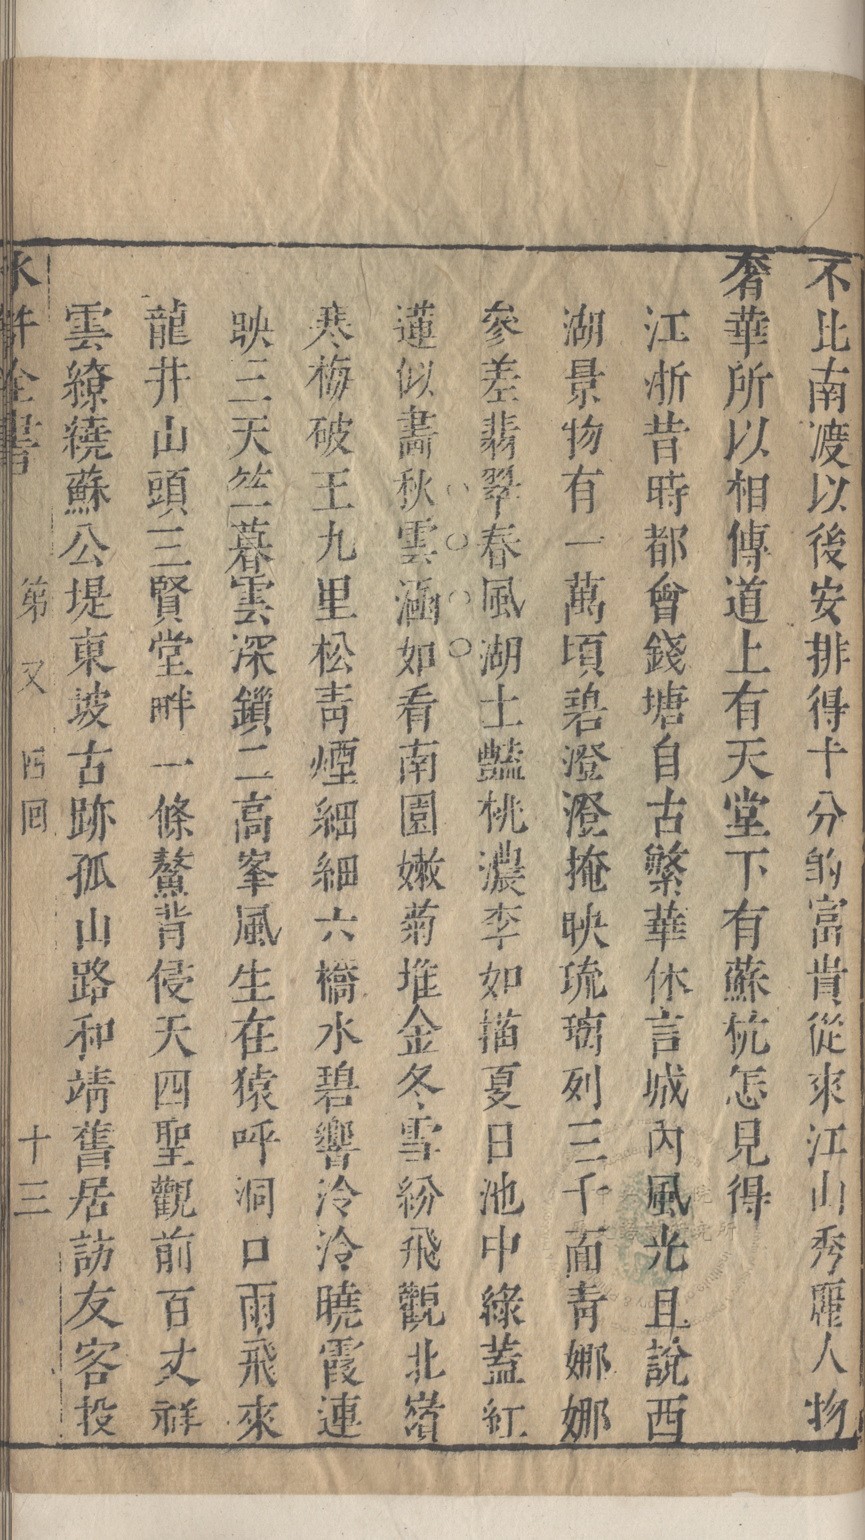 不比南渡以後安排得十分的富貴從來江山秀麗人物
奢華所以相傳道上有天堂下有蘇杭怎見得
江浙昔時都會錢塘自古繁華休言城內風光且說西
湖景物有一萬頃碧澄澄掩映琉璃列三千面青娜娜
參差翡翠春風湖上豔桃濃李如描夏日池中綠蓋紅
蓮似畵秋雲涵如看南園嫩菊堆金冬雪紛飛觀北嶺
寒梅破玉九里松青煙細細六橋水碧響泠泠曉霞連
映三天竺暮雲深鎖二高峯風生在猿呼洞口雨飛來
龍井山頭三賢堂畔一條鰲背侵天四聖觀前百丈祥
雲繚繞蘇公堤東坡古跡孤山路和靖舊居訪友客投
水滸全書 第又四回 十三